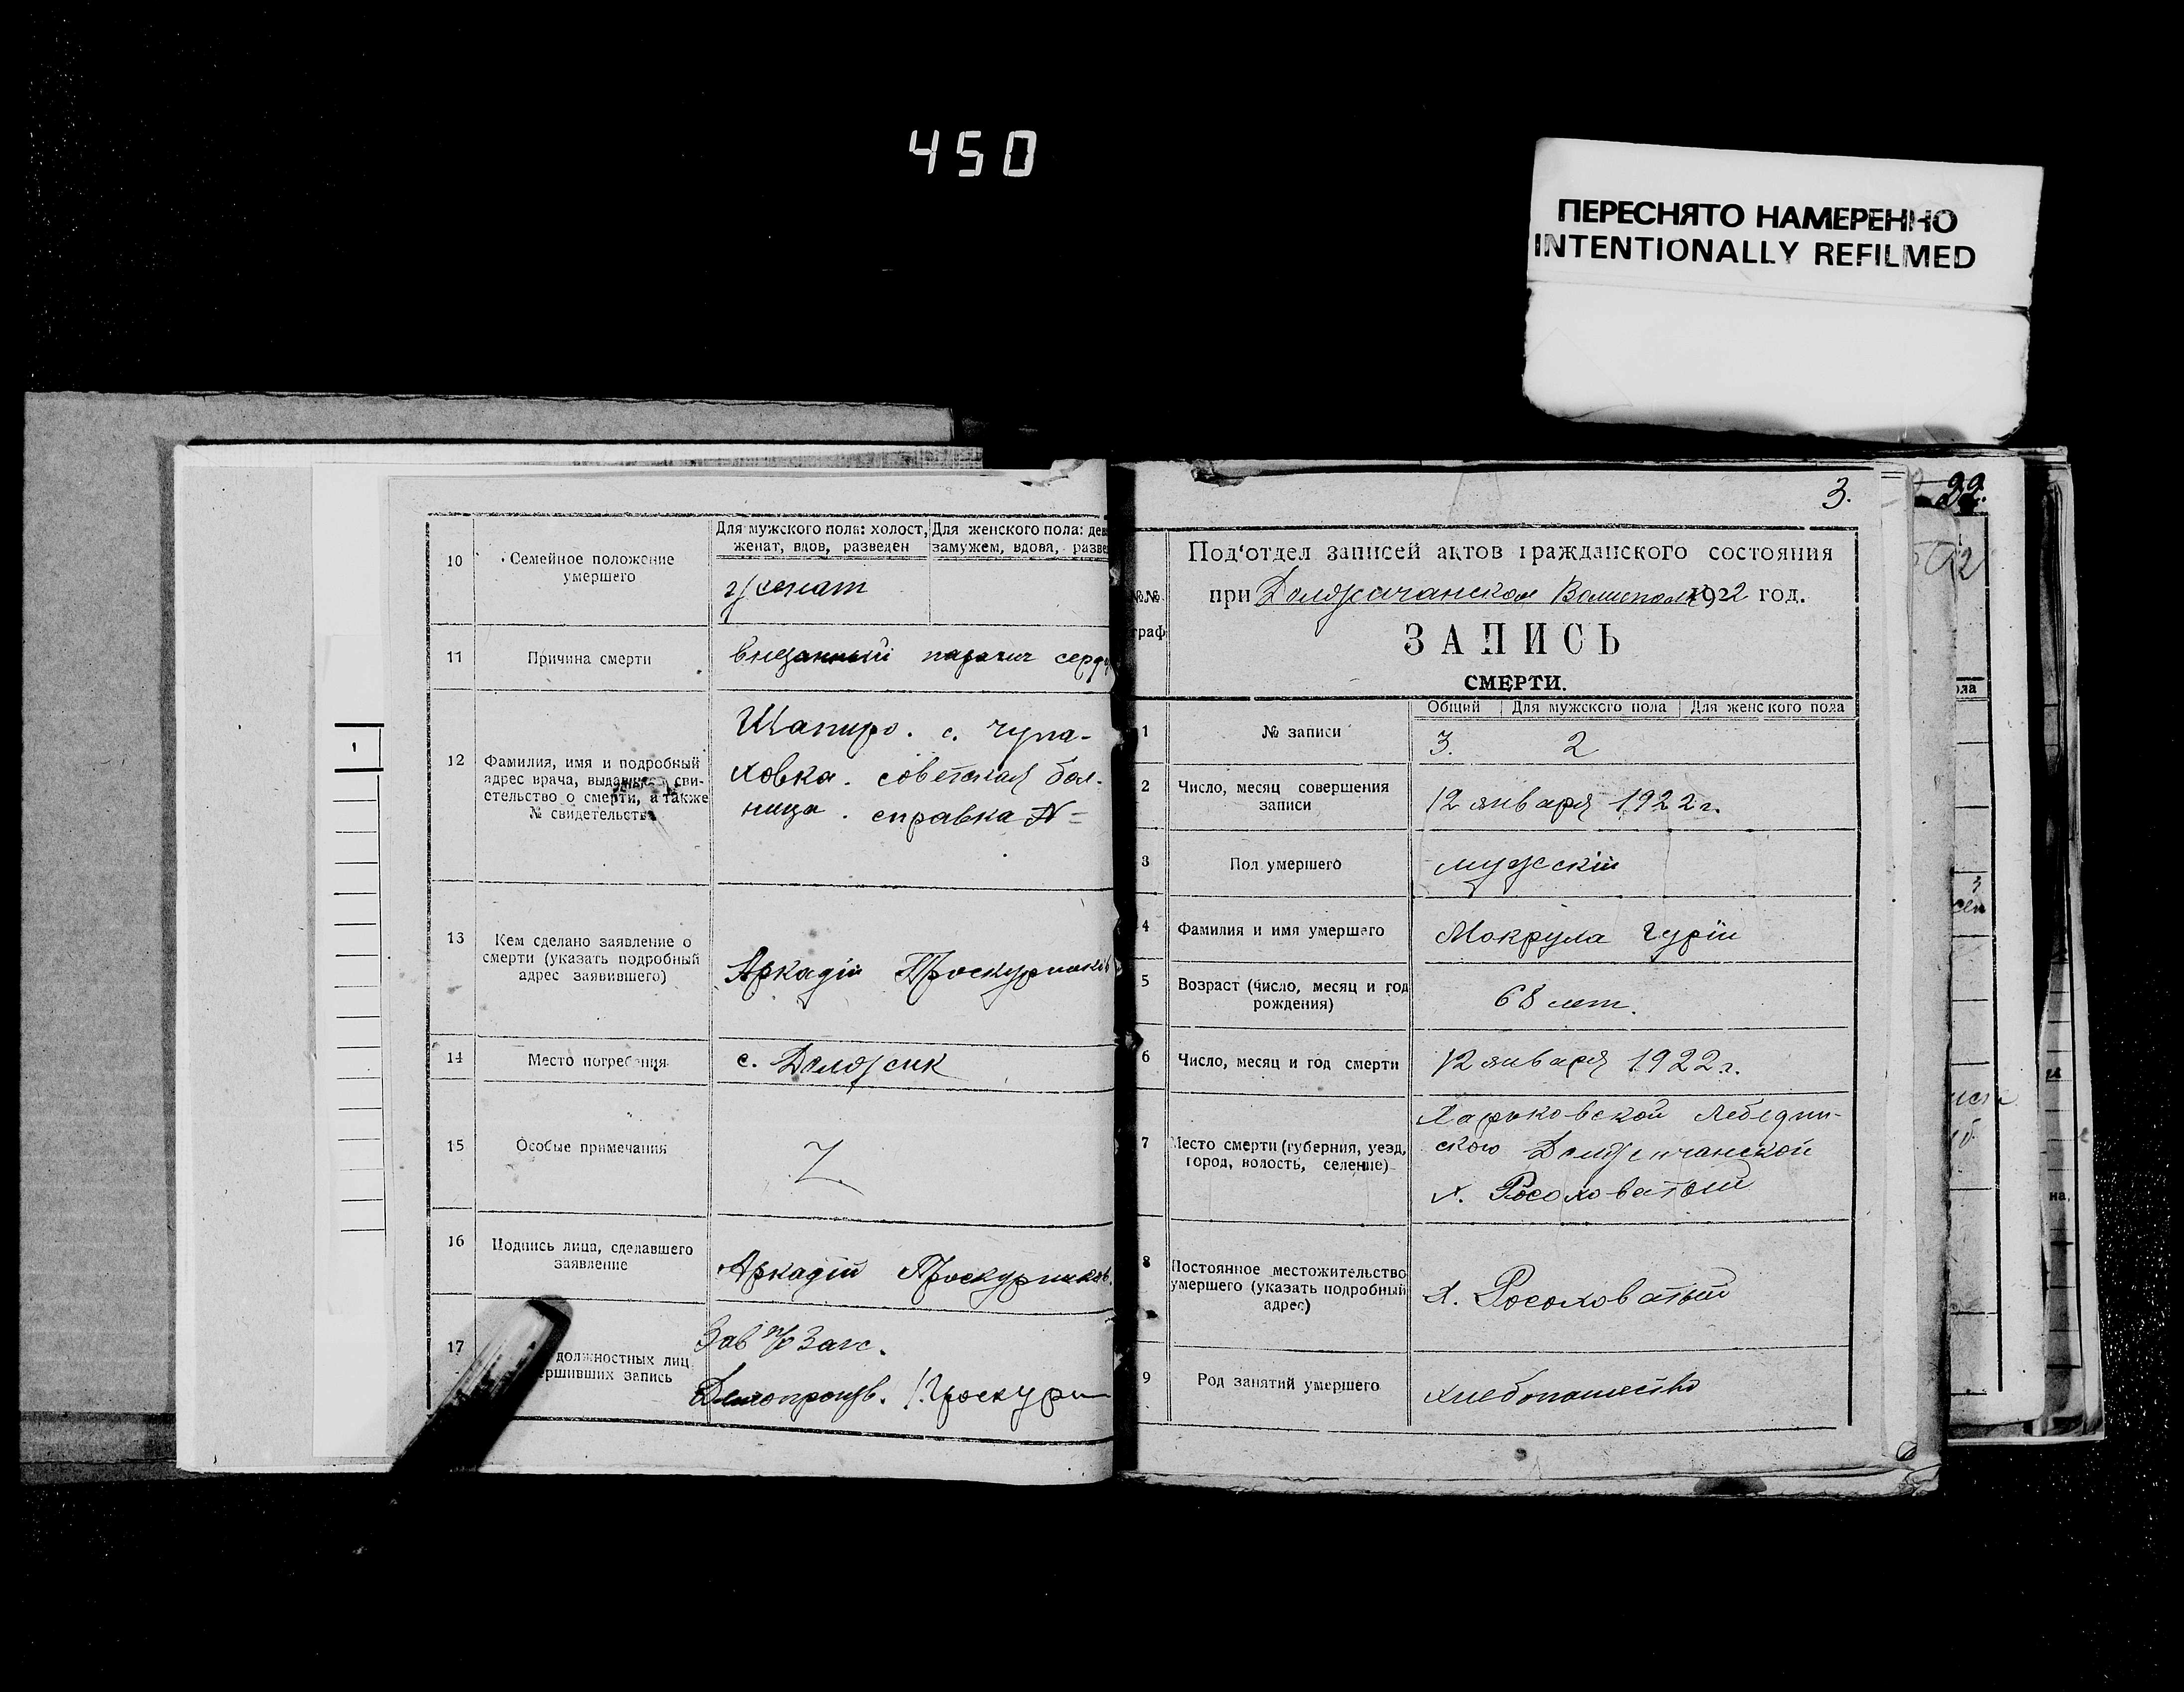 450
ПЕРЕСНЯТО НАМЕРЕННО
INTENTIONALLY REFILMED
10
Семейное положение
умершего
Для мужского пола: холост,
женат, вдов, разведен
Для женского пола: дев
замужем, вдова, разве
женат
11
Причина смерти
внезапный паралич серд
12
Фамилия, имя и подробный
адрес врача, выдавшего сви-
етельство о смерти, а также
№ свидетельства
Шапиро. с. Чупа-
ховка. советская бол-
ница. справка №=
13
Кем сделано заявление о
смерти (указать подробный
адрес заявившего)
Аркадій Проскурников
14
Место погребения
с. Должик
15
Особые примечания
16
Подпись лица, сделавшего
заявление
Аркадій Проскурников.
17
должностных лиц
ершивших запись
Зав п/о Загс.
Делопроизв. Проскурн
3.
№№
граф
Под'отдел записей актов гражданского состояния
при Должичанском 1922 год.
ЗАПИСЬ
СМЕРТИ.
1
№ записи
Общий
Для мужского пола
Для женского пола
3. 2
2
Число, месяц совершения
записи
12 января 1922 г.
3
Пол умершего
мужскій
4
Фамилия и имя умершего
Мокрула Гурій
5
Возраст (число, месяц и год
рождения)
68 лет.
6
Число, месяц и год смерти
12 января 1922 г.
7
Место смерти (губерния, уезд,
город, волость, селение)
Харьковской Лебедин-
ского Должичанской
х. Росоховатый
8
Постоянное местожительство
умершего (указать подробный
адрес)
х. Росоховатый
9
Род занятий умершего
хлебопашество
22.
1